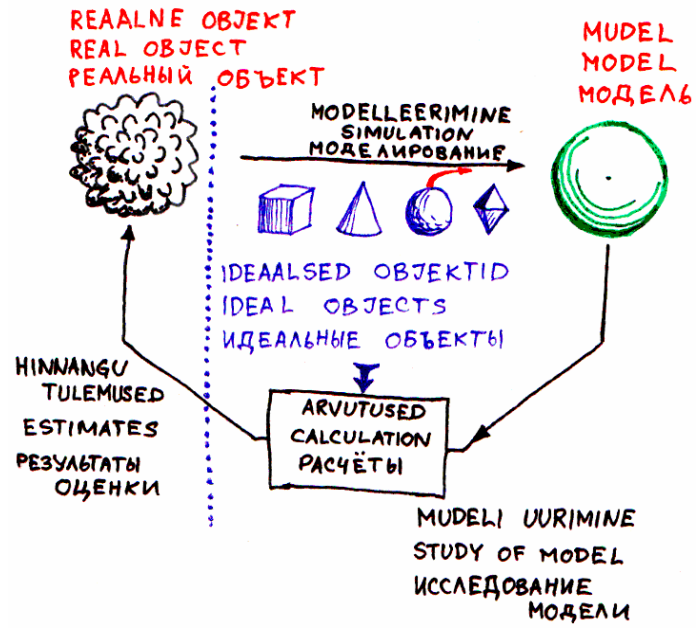 REAALNE OBJEKT
REAL OBJECT
РЕАЛЬНЫЙ ОБЪЕКТ
MUDEL
MODEL
МОДЕЛЬ
MODELLEERIMINE
SIMULATION
МОДЕЛИРОВАНИЕ
IDEAALSED OBJEKTID
IDEAL OBJECTS
ИДЕАЛЬНЫЕ ОБЪЕКТЫ
HINNANGU
TULEMUSED
ESTIMATES
РЕЗУЛЬТАТЫ
ОЦЕНКИ
ARVUTUSED
CALCULATION
РАСЧЁТЫ
MUDELI UURIMINE
STUDY OF MODEL
ИССЛЕДОВАНИЕ
МОДЕЛИ